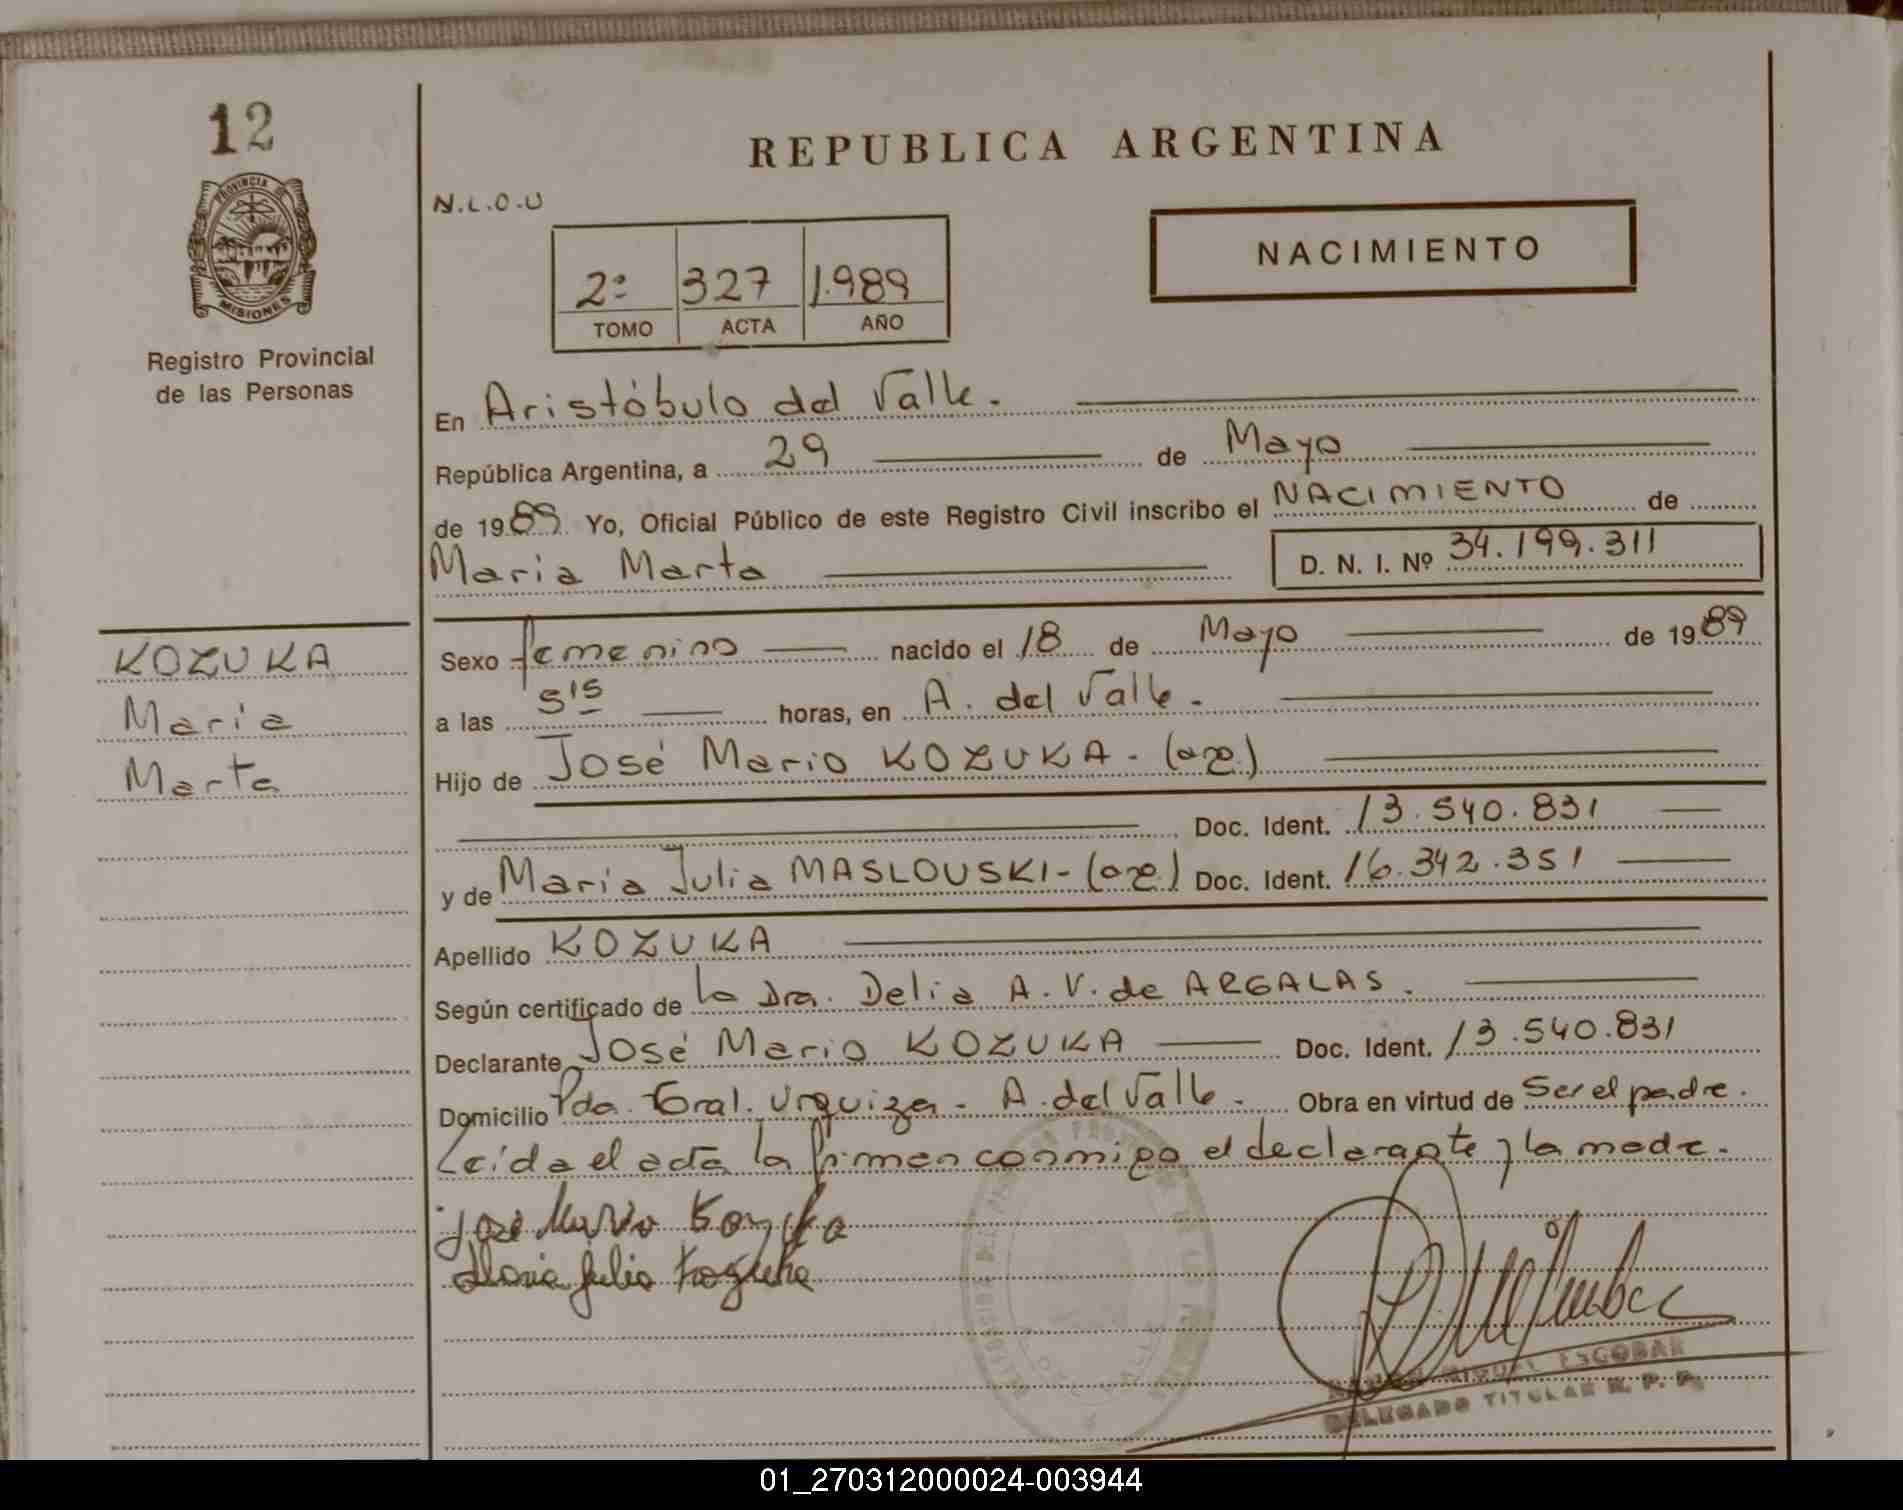 12
PROVINCIA DE
MISIONES
Registro Provincial
de las Personas
KOZUKA
María
Marta
REPUBLICA ARGENTINA
N.L.O.U
NACIMIENTO
2º 327 1.989
TOMO ACTA AÑO
En Aristóbulo del Valle.
República Argentina, a 29 de Mayo
de 1989. Yo, Oficial Público de este Registro Civil inscribo el NACIMIENTO de
María Marta D. N. I. Nº 34.199.311
Sexo femenino nacido el 18 de Mayo de 1989
a las 5'15 horas, en A. del Valle.
Hijo de José Mario KOZUKA - (arg.)
Doc. Ident. 13.540.831
y de María Julia MASLOUSKI - (arg.) Doc. Ident. 16.342.351
Apellido KOZUKA
Según certificado de la Dra. Delia A. V. de ARGALAS.
Declarante José Mario KOZUKA Doc. Ident. 13.540.831
Domicilio Pda. Gral. Urquiza - A. del Valle. Obra en virtud de Ser el padre.
Leída el acta la firman conmigo el declarante y la madre.
José Mario Kozuka
Maria Julia Kozuka
MIGUEL ESCOBAR
DELEGADO TITULAR R. P. P.
01_270312000024-003944